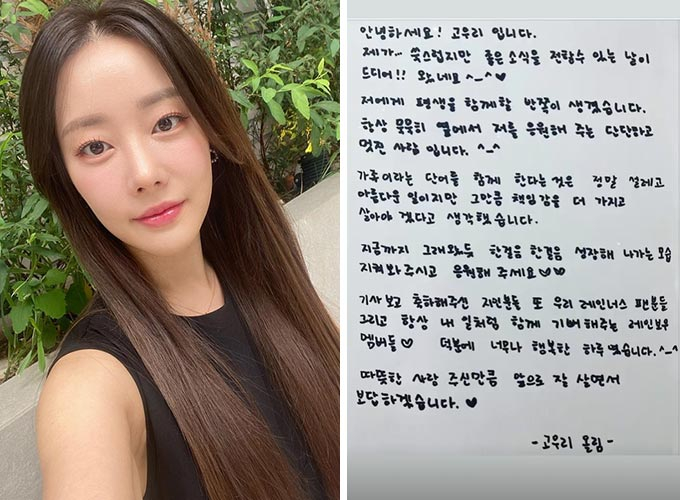 안녕하세요! 고우리 입니다.
제가... 쑥스럽지만 좋은 소식을 전할수 있는 날이
드디어!! 왔네요 ^_^♥
저에게 평생을 함께할 반쪽이 생겼습니다.
항상 묵묵히 옆에서 저를 응원해 주는 단단하고
멋진 사람 입니다. ^_^
가족이라는 단어를 함께 한다는것은 정말 설레고
아름다운 일이지만 그만큼 책임감을 더 가지고
살아야 겠다고 생각했습니다.
지금까지 그래왔듯 한걸음 한걸음 성장해 나가는 모습
지켜봐 주시고 응원해 주세요♡♡
기사 보고 축하해주신 지인분들 또 우리 레인너스 팬분들
그리고 항상 내 일처럼 함께 기뻐해주는 레인보우
멤버들♡ 덕분에 너무나 행복한 하루 였습니다.^_^
따뜻한 사랑 주신만큼 앞으로 잘 살면서
보답하겠습니다.♥
-고우리 올림-